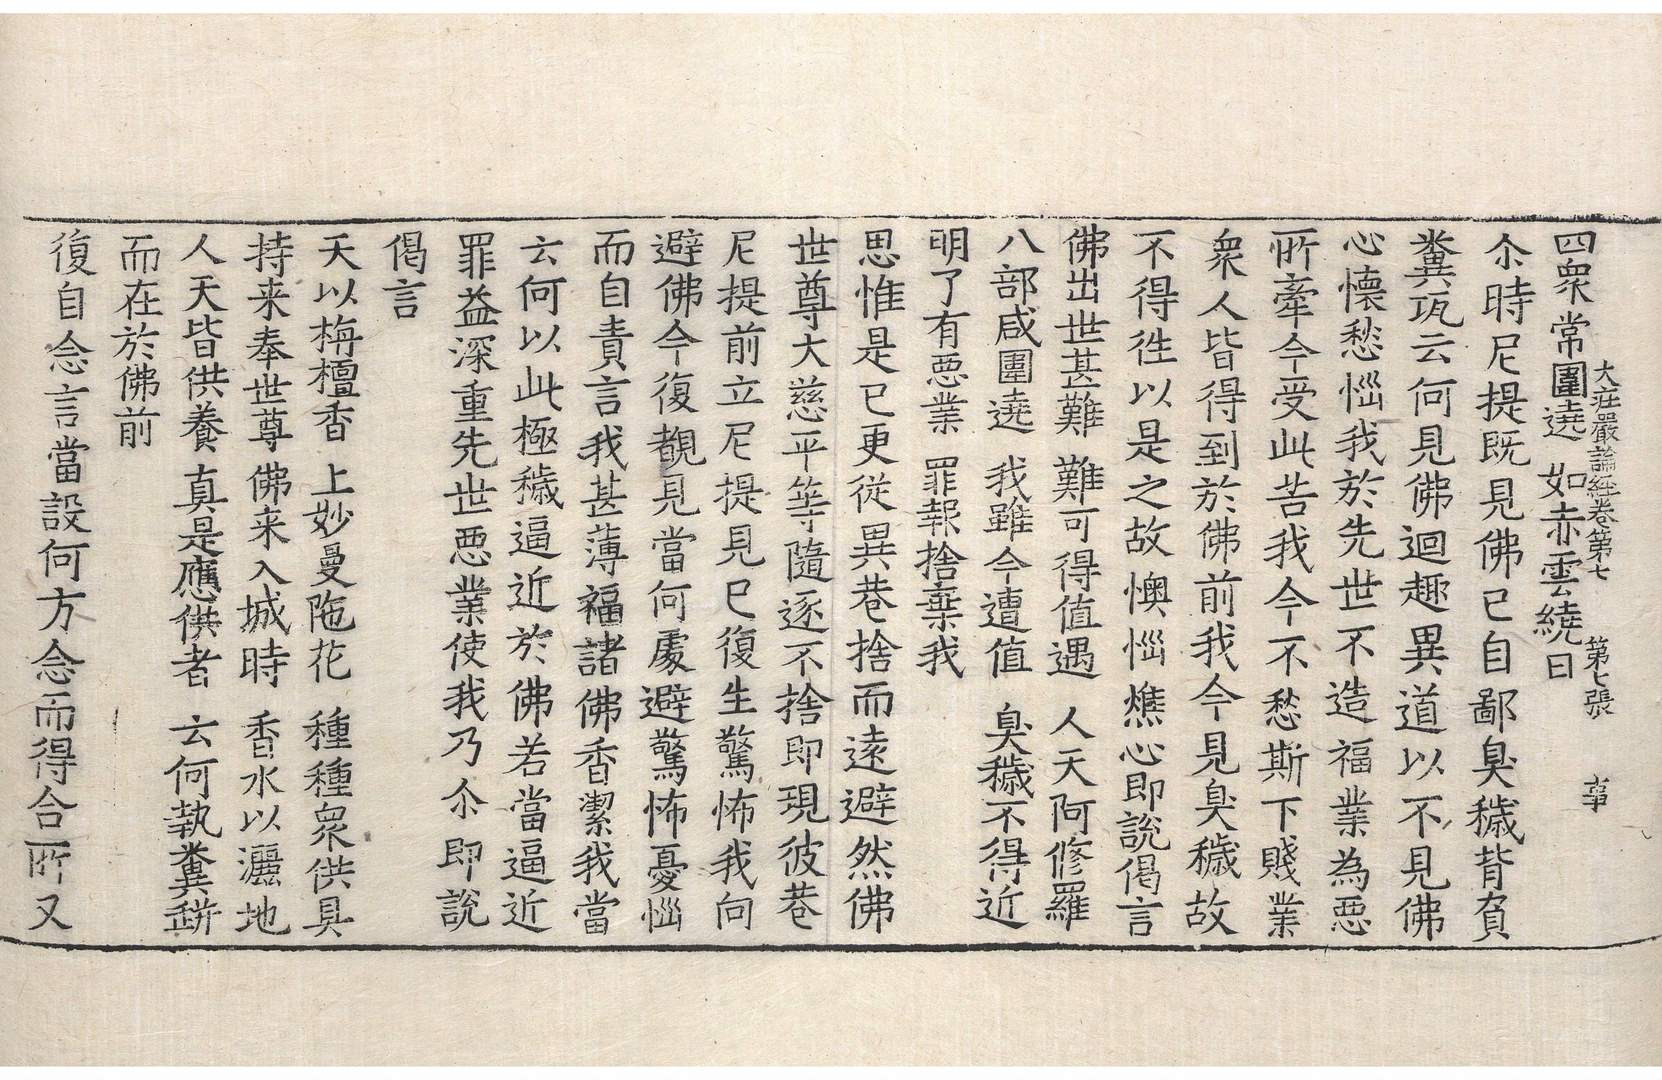 大莊嚴論經卷第七　第七張　事
四衆常圍遶　如赤雲繞日
尒時尼提既見佛已自鄙臭穢背負
糞瓨云何見佛迴趣異道以不見佛
心懷愁惱我於先世不造福業為惡
所牽今受此苦我今不愁斯下賤業
衆人皆得到於佛前我今見臭穢故
不得徃以是之故懊惱燋心即說偈言
佛出世甚難　難可得值遇　人天阿修羅
八部咸圍遶　我雖今遭值　臭穢不得近
明了有惡業　罪報捨棄我
思惟是已更從異巷捨而遠避然佛
世尊大慈平等隨逐不捨即現彼巷
尼提前立尼提見已復生驚怖我向
避佛今復覩見當何處避驚怖憂惱
而自責言我甚薄福諸佛香潔我當
云何以此極穢逼近於佛若當逼近
罪益深重先世惡業使我乃尒即說
偈言
天以栴檀香　上妙曼陁花　種種衆供具
持来奉世尊　佛来入城時　香水以灑地
人天皆供養　真是應供者　云何執糞缾
而在於佛前
復自念言當設何方念而得合所又